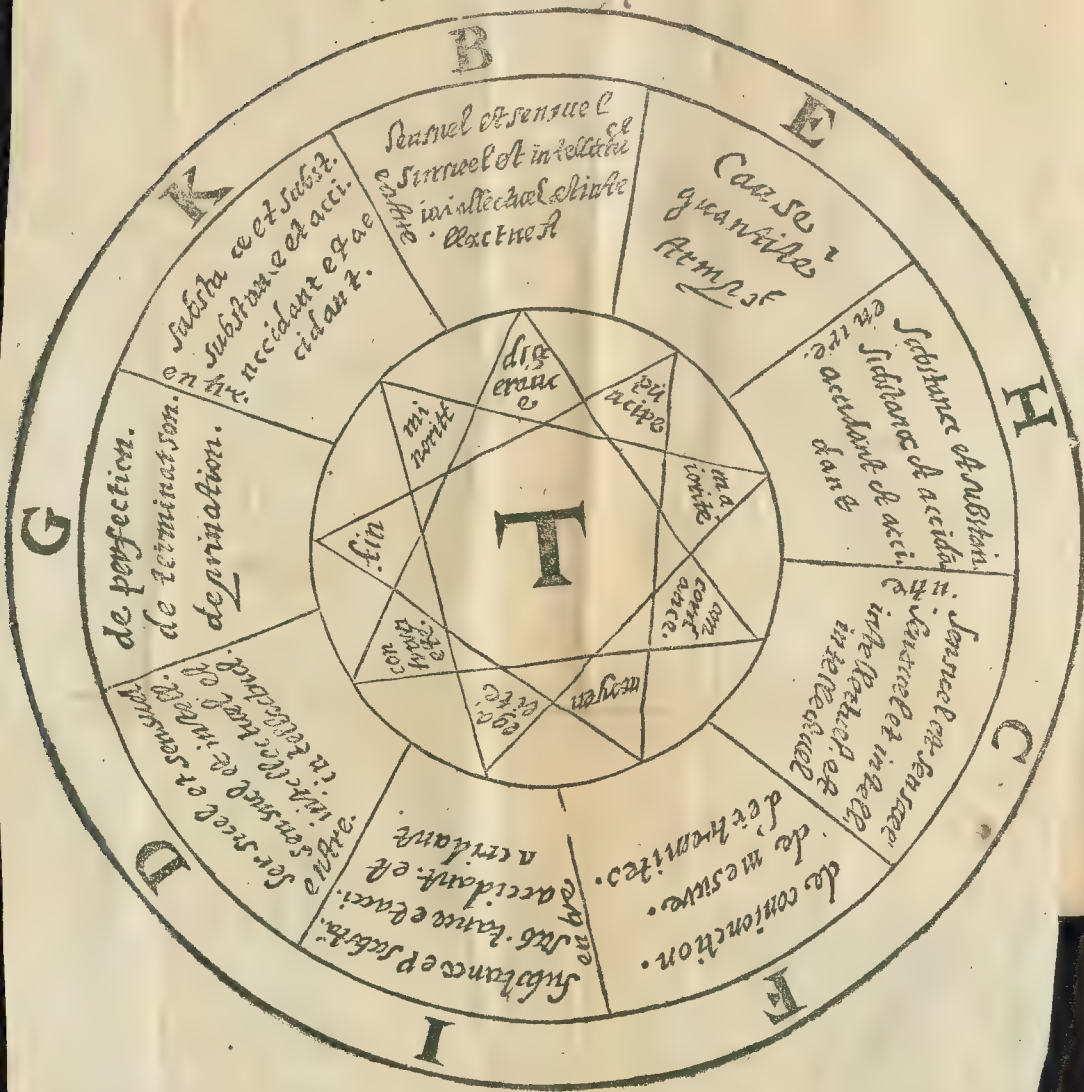 B
Sensuel et sensuel
sensuel et intellectu
intellectuel et inte
llectuel
entre
E
Cause
quantite
temps
H
Substance et substan
substance et accidã
accidant et acci
dant
entre.
C
Sensuel et sensuel
sensuel et intell.
intellectuel et
intellectuel
F
de conionction.
de mesure.
de extremites.
I
Substance et substã.
substance et acci.
accidant et
accidant
entre
D
Sensuel et sensuel
sensuel et intell.
intellectuel et
intellectuel.
entre.
G
de perfection.
de terminatson.
de privation.
K
substa ce et subst.
substan. e et acci.
accidant et ac
cidant.
T
mi
norite
ma
iorite
con
cord
ance.
moyen
ega
lite
con
fin.